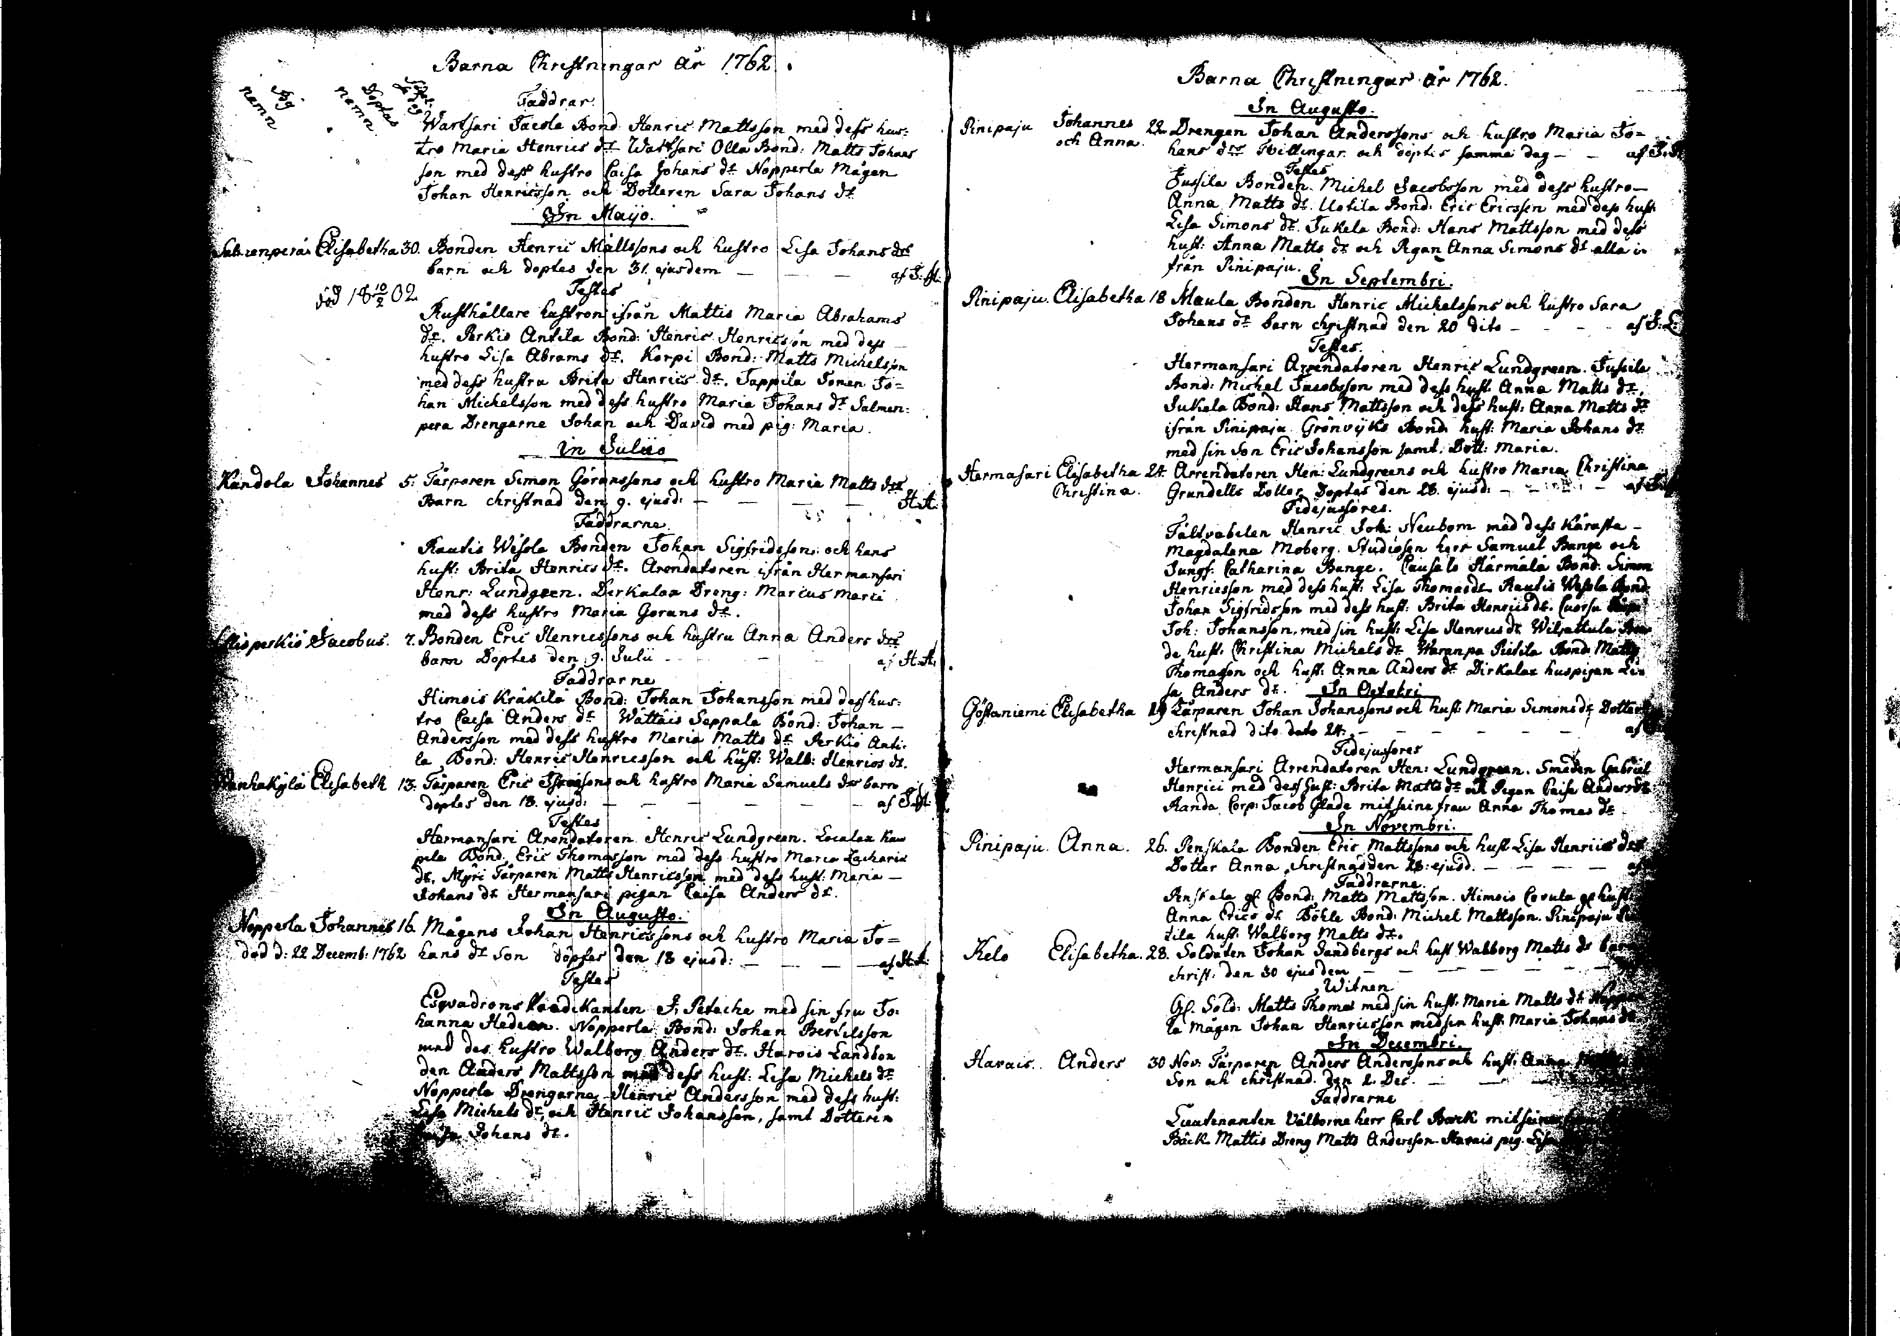 Barna Christningar år 1762.
By namn
Doptas namn
Faddrar.
Wartsari Jacola Bond Henric Mattsson med dess hus-
tro Maria Henrics dr Wartsari Olla Bond: Matts Johans
son med dess hustro Caisa Johans dr Nopperla Mågen
Johan Henricsson och Dotteren Sara Johans dr
In Mayo.
Salmenperä Elisabetha 30. Bonden Henric Mattssons och hustro Lisa Johans drs
barn och döptes den 31. ejusdem — — — af J. H.
död 18 10/2 02
Testes
Rusthållare hustron ifrån Mattis Maria Abrahams
dr. Perkio Antila Bond: Henric Henricsson med dess
hustro Lisa Abrams dr. Korpi Bond: Matts Michelsson
med dess hustru Brita Henrics dr. Tappila Sonen Jo=
han Michelsson med dess hustro Maria Johans dr Salmen:
pera Drengarne Johan och David med pig: Maria.
in Julio
Kandola Johannes 5. Tårparen Simon Göranssons och hustro Maria Matts drs
Barn christnad den 9. ejusd: — — — — H.A.
Faddrarne.
Rautis Wesola Bonden Johan Sigfridsson och hans
hust: Brita Henrics dr. Arendatoren ifrån Hermansari
Henr: Lundgren. Dirkalax Dreng: Marcus Marci
med dess hustro Maria Görans dr.
Jacobus. 7. Bonden Eric Henricssons och hustru Anna Anders drs
barn Doptes den 9. Julii — — — af H.A.
Faddrarne
Himois Kräkilä Bond: Johan Johansson med dess hus:
tro Caisa Anders dr Wättäis Seppala Bond: Johan —
Andersson med dess hustro Maria Matts dr Perkio Anti:
la Bond: Henric Henricsson och hust: Walb: Henrics dr.
Wanhakylä Elisabeth 13. Tårparen Eric och hustro Maria Samuels drs barn
doptes den 18. ejusd: — — — — — af J. H.
Testes
Hermansari Arendatoren Henric Lundgreen. Localax
pila Bond. Eric Thomasson med dess hustro Maria Zacharie
dr. Myri Tårparen Matts Henricsson med dess hust. Maria —
Johans dr Hermansari pigan Caisa Anders dr.
In Augusto.
Nopperla Johannes 16. Mågens Johan Henricssons och hustro Maria Jo=
död d: 22 Decemb: 1762 hans dr Son döptes den 18 ejusd: — — — af H.A.
Testes
Esqvadrons Predikanten J. Peteche med sin fru Jo:
hanna Hedeen. Nopperla Bond: Johan Bertilsson
med des hustro Walborg Anders dr. Harois Landbon
den Anders Mattsson med dess hust: Lisa Michels dr
Nopperla Drengarne Henric Andersson med dess hust:
Lisa Michels dr och Henric Johansson, samt Dotteren
Johans dr.
Barna Christningar år 1762.
In Augusto.
Pinipaju Johannes och Anna. 22 Drengen Johan Anderssons och hustro Maria Jo=
hans drs Tvillingar och döptes samma dag — — af
Testes
Jussila Bonden. Michel Jacobsson med dess hustro —
Anna Matts dr. Uotila Bond: Eric Ericsson med dess hust:
Lisa Simons dr. Jukela Bond: Hans Mattsson med dess
hust: Anna Matts dr och Pigan Anna Simons dr alla i
från Pinipaju.
In Septembri.
Pinipaju. Elisabetha 18 Maula Bonden Henric Michelssons och hustro Sara
Johans dr barn christnad den 20 dito — — — af J. L.
Testes.
Hermansari Arrendatoren Henric Lundgreen. Jussila
Bond: Michel Jacobsson med dess hust. Anna Matts dr.
Jukala Bond: Hans Mattsson och dess hust: Anna Matts dr
ifrån Pinipaju. Grönvijks Bond: hust: Maria Johans dr
med sin son Eric Johansson samt, Dott: Maria.
Hermasari Elisabetha Christina. 24. Arrendatoren Hen: Lundgreens och hustro Maria Christina
Grundells Dotter Doptes den 28. ejusd: — — — af
Fidejussores.
Fältvabelen Henric Joh: Neuborn med dess Käresta —
Magdalena Moberg. Studiosen herr Samuel Bange och
Jungf: Catharina Bange. Härmälä Bond: Simon
Henricsson med dess hust: Lisa Thomas dr. Rautis Wesola Bond
Johan Sigfridsson med dess hust: Brita Henrics dr.
Joh: Johansson. med sin hust: Lisa Henrics dr
de hust: Christina Michels dr Waranpa Bond: Matts
Thomasson och hust: Anna Anders dr Dirkalax huspigan Li=
sa Anders dr.
In Octobri
Göstaniemi Elisabetha 19 Tårparen Johan Johanssons och hust: Maria Simons dr Dotter
christnad dito dato 24. — — — — — af
Fidejussores
Hermansari Arrendatoren Hen: Lundgreen. Smeden Gabriel
Henrici med dess hust: Brita Matts dr och Pigan Caisa Anders dr
Randa Corp: Jacob Glade mit seine frau Anna Thomas dr
In Novembri.
Pinipaju. Anna. 26. Penskala Bonden Eric Mattssons och hust Lisa Henrics drs
Dotter Anna, christnad den 28. ejusd. — — —
Faddrarne.
Penskala gl Bond: Matts Mattsson. Himois
Anna Erics dr Böhle Bond: Michel Mattsson. Pinipaju
tila hust: Walborg Matts dr.
Kelo Elisabetha. 28. Soldaten Johan Sandbergs och hust Walborg Matts dr
christ: den 30 ejusdem — — — —
Witnen
Gl. Sold: Matts Thomas med sin hust: Maria Matts dr Nopper=
la mågen Johan Henricsson med sin hust: Maria Johans dr
In Decembri.
Harais. Anders 30 Nov. Tårparen Anders Anderssons och hust: Anna
Son och christnad den 2. Dec. — —
Faddrarne
Lieutenanten Välborne herr Carl Bock mit seine
Bäck Mattis Dreng Matts Andersson Harais pig. Lisa